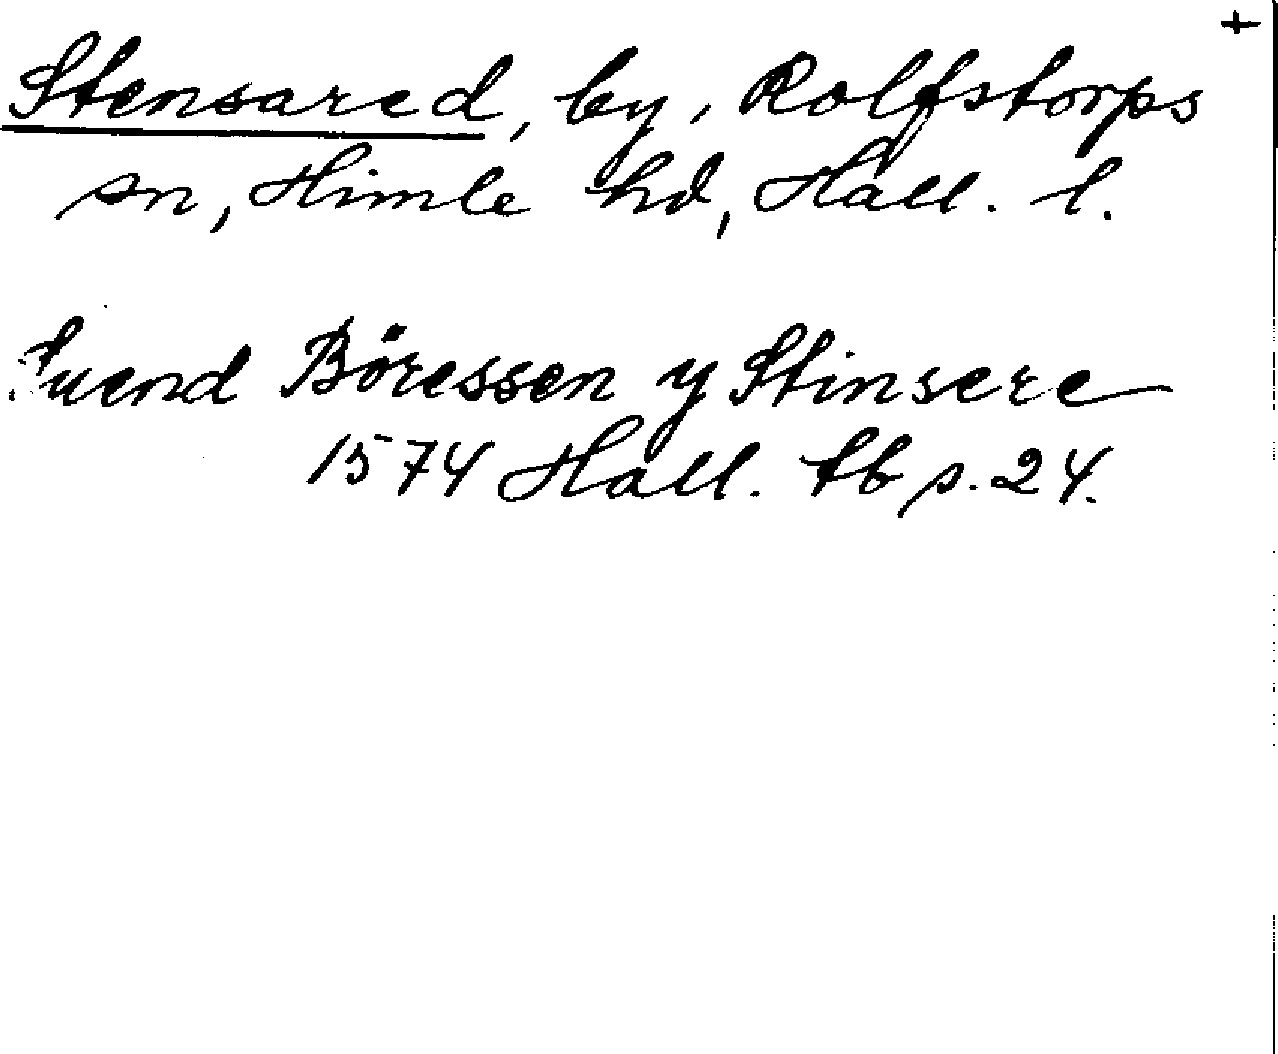 +
Stensared, by, Rolfstorps
sn, Himle hd, Hall. l.
Suend Böressen y Stinsere
1574 Hall. tb s. 24.